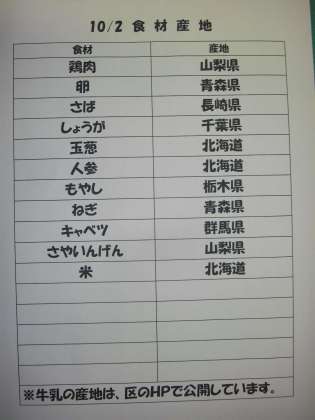 10/2 食材産地
食材 産地
鶏肉 山梨県
卵 青森県
さば 長崎県
しょうが 千葉県
玉葱 北海道
人参 北海道
もやし 栃木県
ねぎ 青森県
キャベツ 群馬県
さやいんげん 山梨県
米 北海道
※牛乳の産地は、区のHPで公開しています。